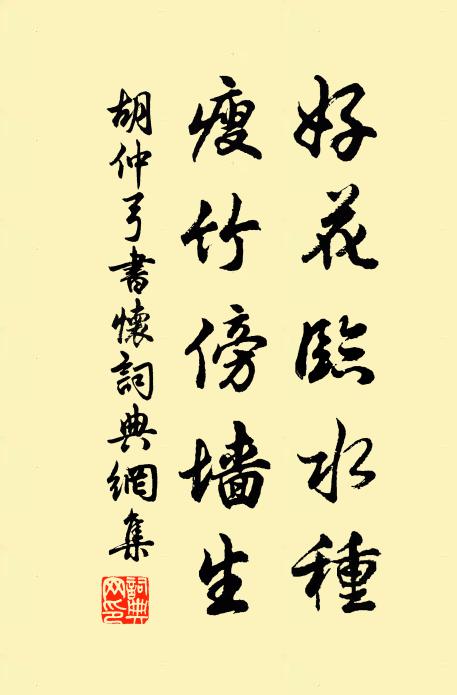 好花臨水種
瘦竹傍墻生
胡仲弓書懷詞典網集
詞典網印